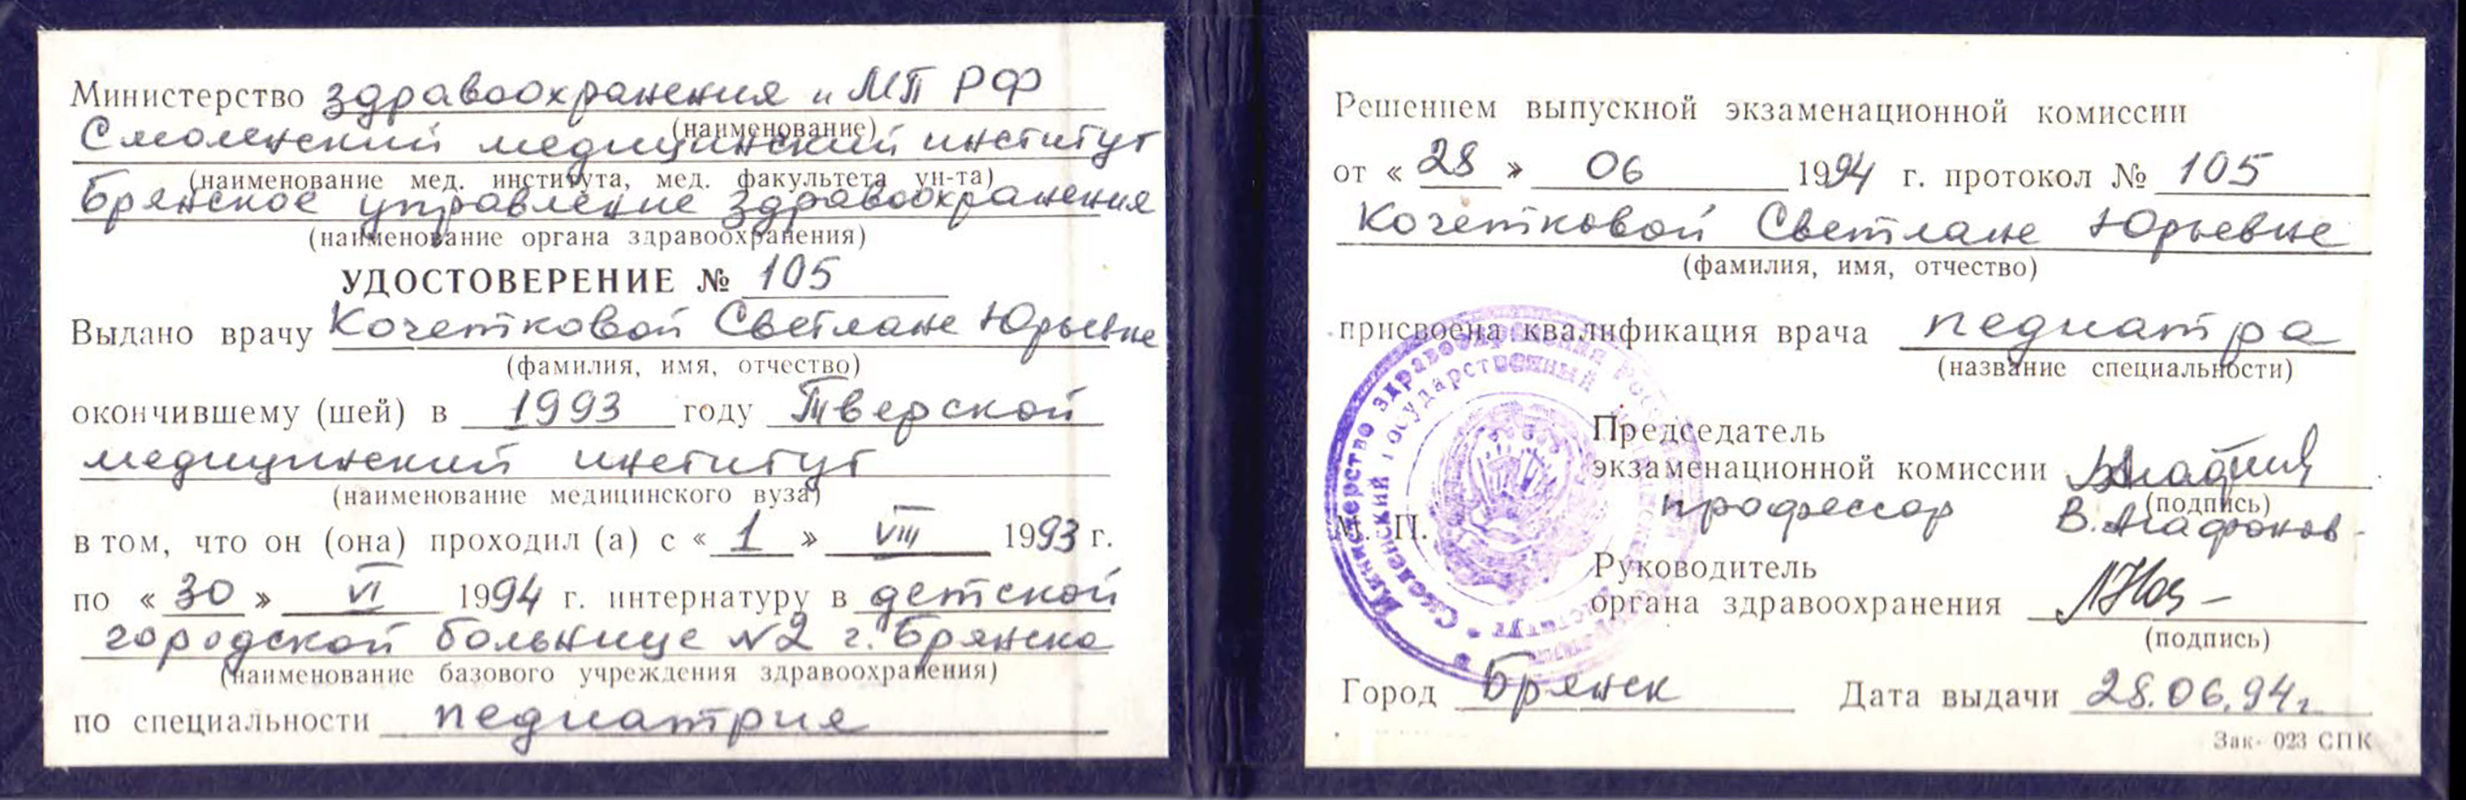 Министерство здравоохранения и МП РФ
(наименование)
Смоленский медицинский институт
(наименование мед. института, мед. факультета ун-та)
Брянское управление здравоохранения
(наименование органа здравоохранения)
УДОСТОВЕРЕНИЕ № 105
Выдано врачу Кочетковой Светлане Юрьевне
(фамилия, имя, отчество)
окончившему (шей) в 1993 году Тверской
медицинский институт
(наименование медицинского вуза)
в том, что он (она) проходил (а) с « 1 » VIII 1993 г.
по « 30 » VI 1994 г. интернатуру в детской
городской больнице №2 г. Брянска
(наименование базового учреждения здравоохранения)
по специальности педиатрия
Решением выпускной экзаменационной комиссии
от « 28 » 06 1994 г. протокол № 105
Кочетковой Светлане Юрьевне
(фамилия, имя, отчество)
присвоена квалификация врача педиатра
(название специальности)
Председатель
экзаменационной комиссии
(подпись)
профессор В. Агафонов
М. П.
Руководитель
органа здравоохранения
(подпись)
Город Брянск Дата выдачи 28.06.94г
Зак. 023 СПК
Министерство здравоохранения
Смоленский государственный
институт